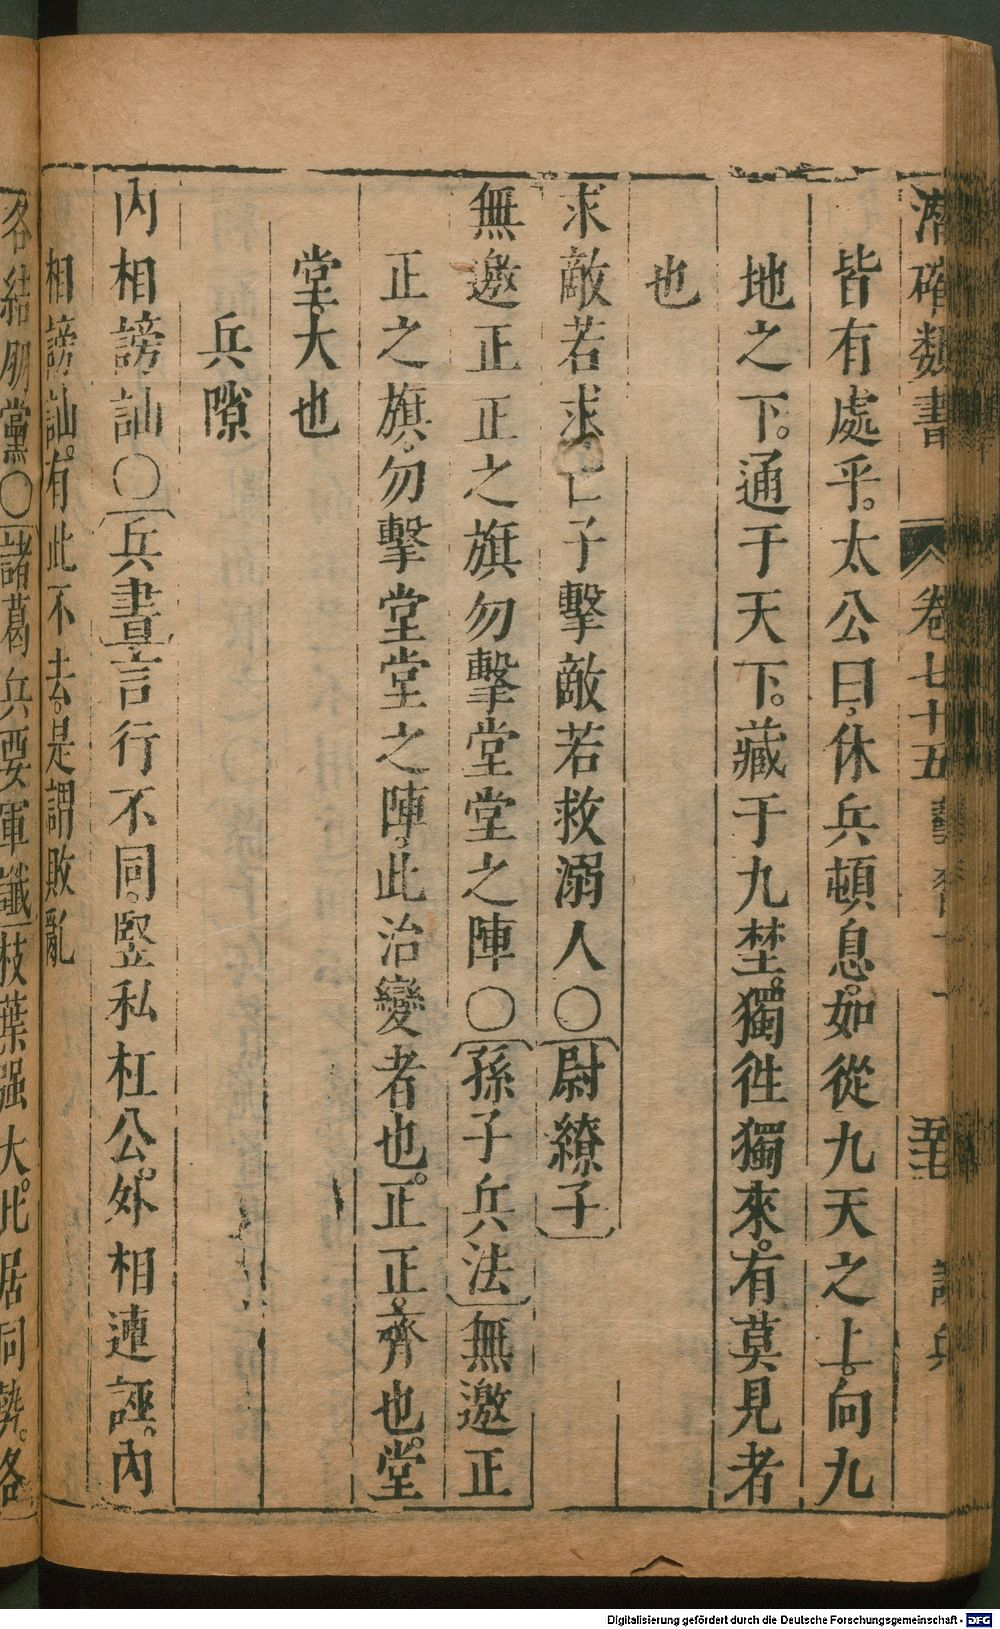 潛確類書 卷七十五 藝 談兵
皆有處乎太公曰休兵頓息如從九天之上向九
地之下通于天下藏于九埜獨徃獨來有莫見者
也
求敵若求子擊敵若救溺人〇尉繚子
無邀正正之旗勿擊堂堂之陣〇孫子兵法無邀正
正之旗勿擊堂堂之陣此治變者也正正齊也堂
堂大也
兵隙
內相謗訕〇兵晝言行不同竪私杠公外相連誣內
相謗訕有此不去是謂敗亂
各結朋黨〇諸葛兵要軍讖枝葉强大比居同勢各
Digitalisierung gefördert durch die Deutsche Forschungsgemeinschaft - DFG